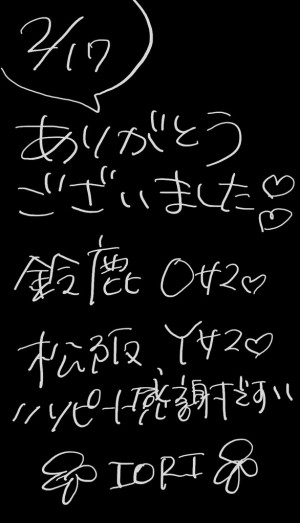 2/17
ありがとう
ございました♡♡
鈴鹿 Oサﾏ♡
松阪 Yサﾏ♡
リピート感謝ですッ
IORI